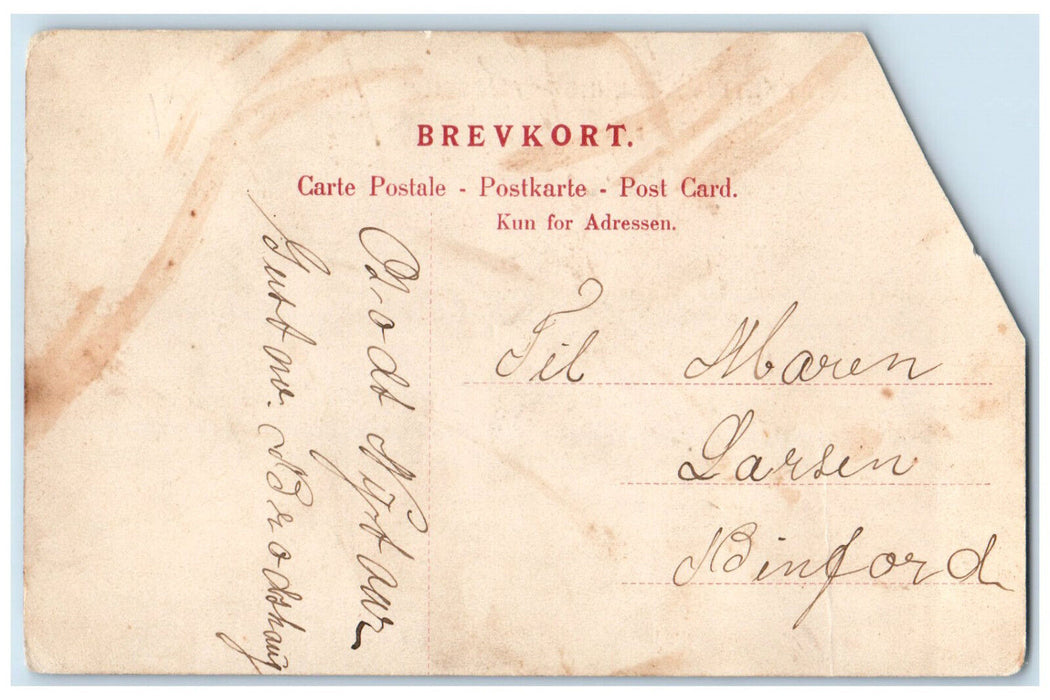 BREVKORT.
Carte Postale - Postkarte - Post Card.
Kun for Adressen.
Godt Nyt aar
Brodshaug
Til Maren
Larsen
Binford